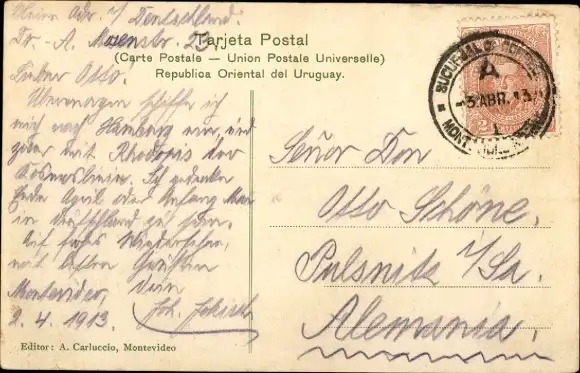 Meine Adr. i/ Deutschland:
Dr.-A.
Tarjeta Postal
(Carte Postale — Union Postale Universelle)
Republica Oriental del Uruguay.
Lieber Otto!
Übermorgen schiffe ich
mich nach Hamburg ein, und
zwar mit der
Kosmoslinie. Ich gedenke
Ende April oder Anfang Mai
in Deutschland zu sein.
Auf frohes Wiedersehen,
mit besten Grüßen
Dein
Montevideo,
2.4.1913.
Joh.
Editor: A. Carluccio, Montevideo
A
3.ABR.13
Señor Don
Otto Schöne.
Pulsnitz i/Sa.
Alemania.